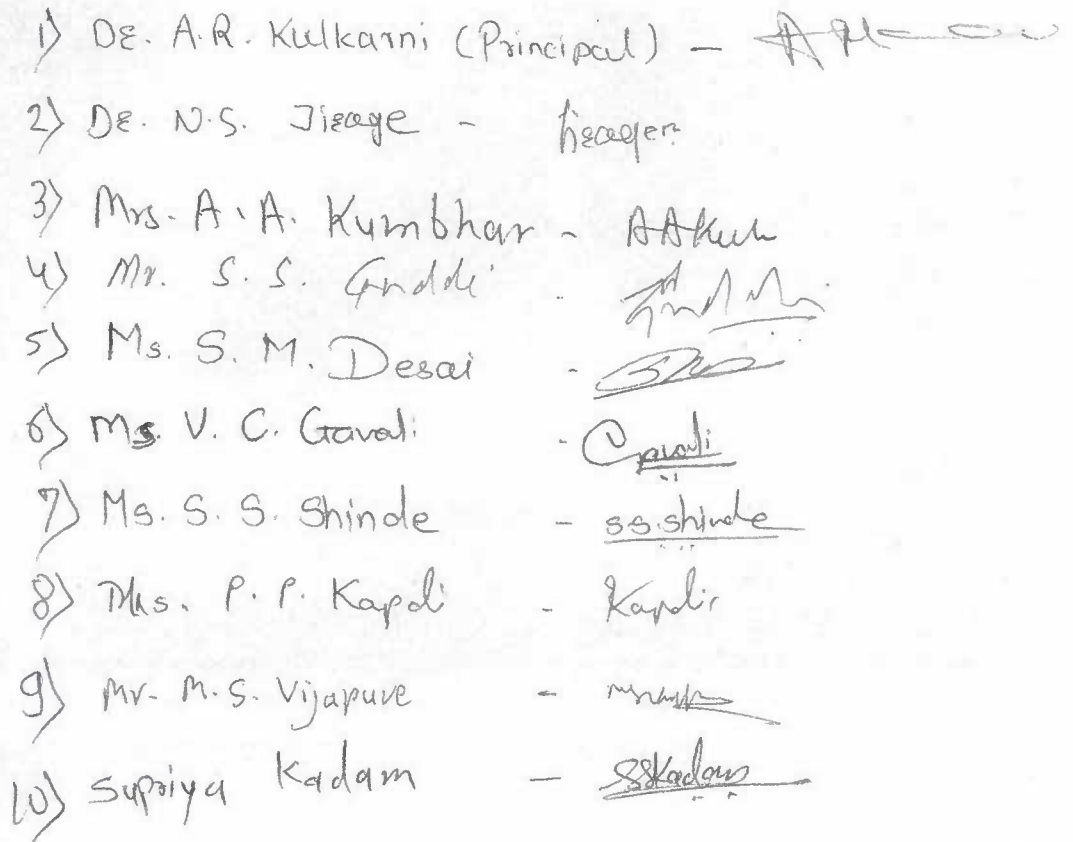 1) Dr. A.R. Kulkarni (Principal) -
2) Dr. N.S. Jirage - Jirage
3) Mrs. A. A. Kumbhar - AAKum
4) Mr. S. S. Guddi -
5) Ms. S. M. Desai -
6) Ms. V. C. Gavali - Gavali
7) Ms. S. S. Shinde - ss.shinde
8) Mrs. P. P. Kapali - Kapali
9) Mr. M. S. Vijapure -
10) Supriya Kadam - SSKadam